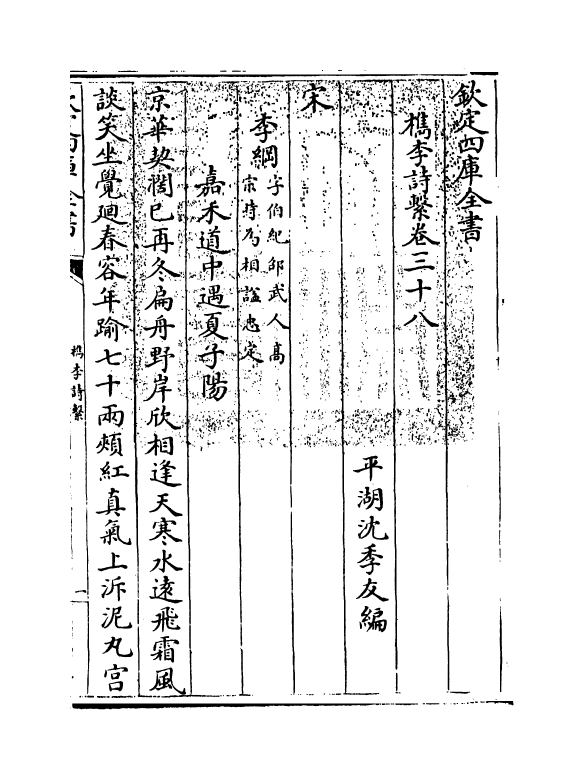 欽定四庫全書
檇李詩繫卷三十八
平湖沈季友編
宋
李綱字伯紀邵武人高
宗時為相諡忠定
嘉禾道中遇夏子陽
京華契闊已再冬扁舟野岸欣相逢天寒水遠飛霜風
談笑坐覺廻春容年踰七十兩頰紅真氣上泝泥丸宮
檇李詩繫
一